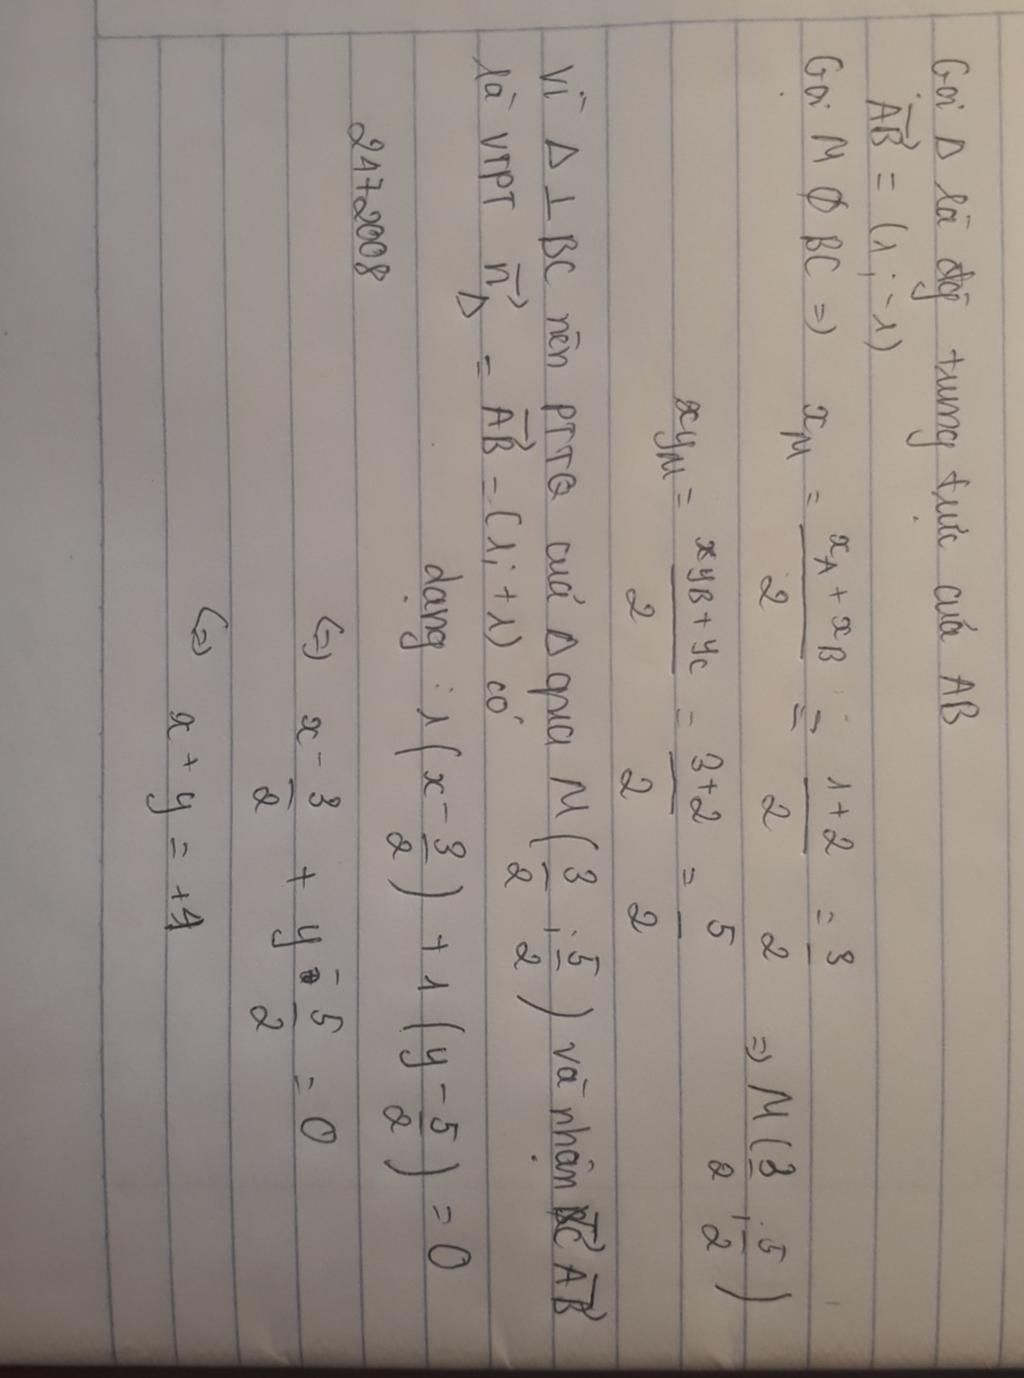 Gọi Δ là đg trung trực của AB
AB = (1; -1)
Gọi M Ø BC => xM = xA + xB / 2 = 1+2 / 2 = 3 / 2 => M(3/2; 5/2)
xyM = xyB + yC / 2 = 3+2 / 2 = 5 / 2
Vì Δ ⊥ BC nên PTTQ cuả Δ qua M(3/2; 5/2) và nhận AB
là VTPT nΔ = AB = (1; +1) có
dạng : 1(x - 3/2) + 1(y - 5/2) = 0
2472008
<=> x - 3/2 + y - 5/2 = 0
<=> x + y = +4